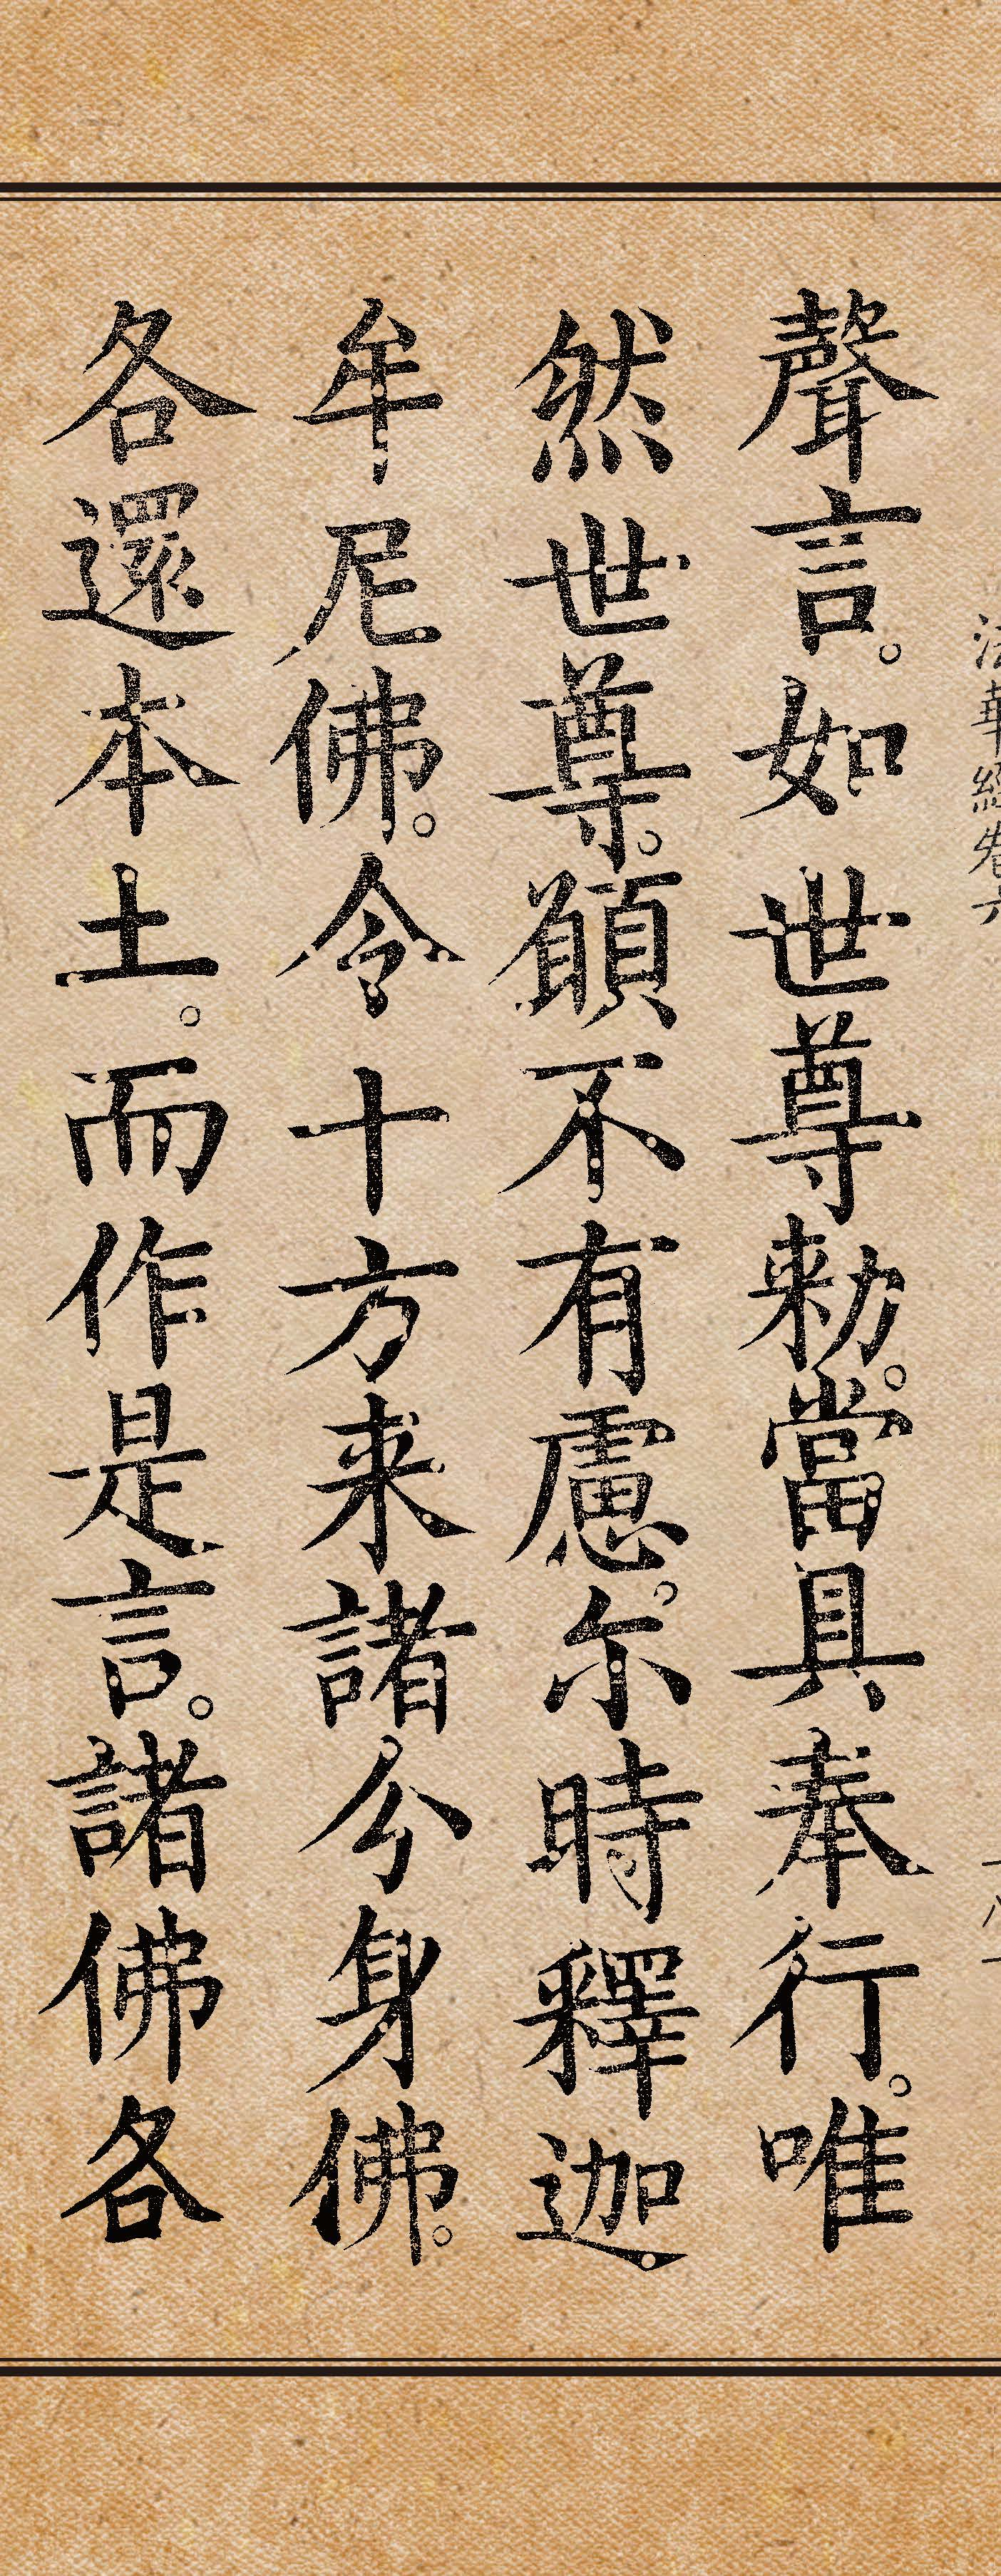 法華經卷六
聲言。如世尊勑。當具奉行。唯
然世尊。願不有慮。尒時釋迦
牟尼佛。令十方来諸分身佛。
各還本土。而作是言。諸佛各